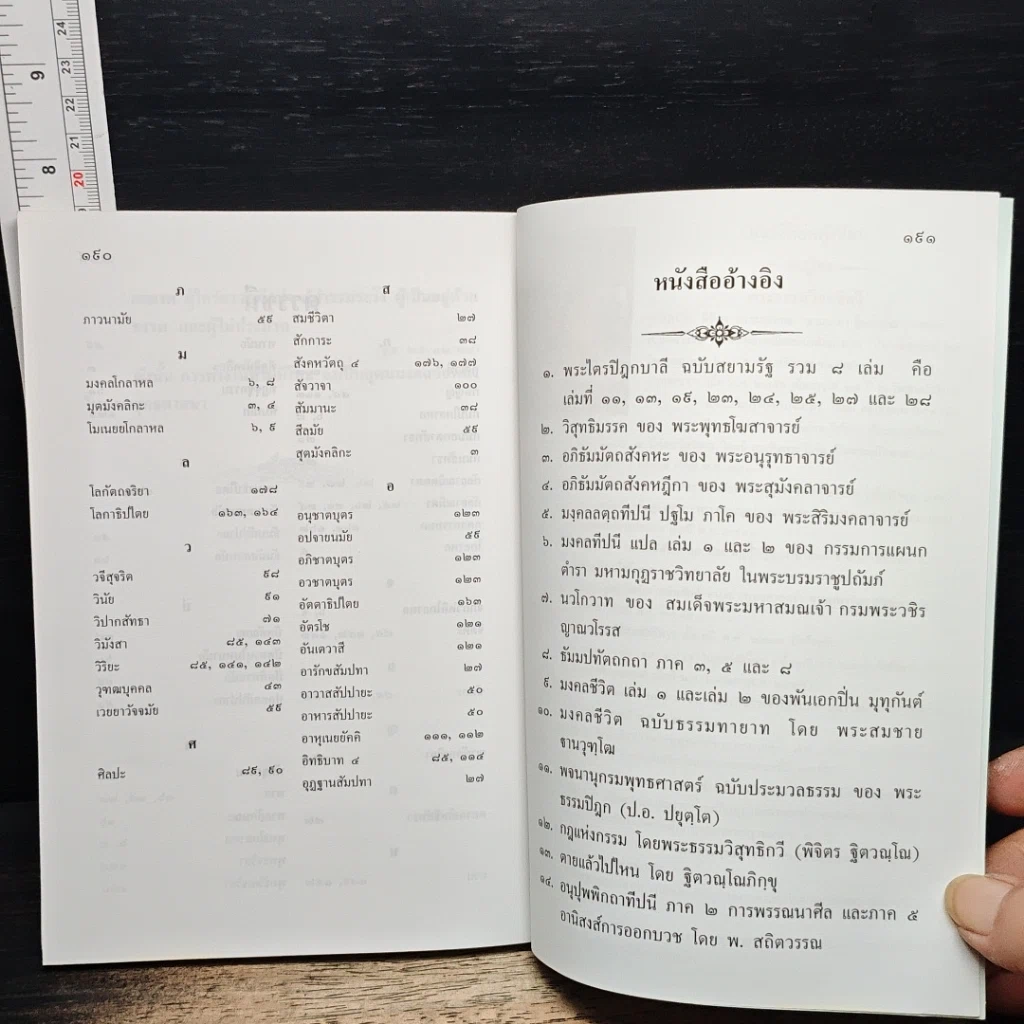 ๑๙๐
ภ
ภาวนามัย ๕๙
ม
มงคลโกลาหล ๖, ๘
มุตมังคลิกะ ๓, ๔
โมเนยยโกลาหล ๖, ๙
ล
โลกัตถจริยา ๑๗๘
โลกาธิปไตย ๑๖๓, ๑๖๔
ว
วจีสุจริต ๙๘
วินัย ๙๑
วิปากสัทธา ๗๑
วิมังสา ๘๕, ๑๔๓
วิริยะ ๘๕, ๑๔๑, ๑๔๒
วุฑฒบุคคล ๔๓
เวยยาวัจจมัย ๕๙
ศ
ศิลปะ ๘๙, ๙๐
ส
สมชีวิตา ๒๗
สักการะ ๓๘
สังคหวัตถุ ๔ ๑๗๖, ๑๗๗
สัจวาจา ๑๐๐
สัมมานะ ๓๘
สีลมัย ๕๙
สุตมังคลิกะ ๓
อ
อนุชาตบุตร ๑๒๓
อปจายนมัย ๕๙
อภิชาตบุตร ๑๒๓
อวชาตบุตร ๑๒๓
อัตตาธิปไตย ๑๖๓
อัตรโช ๑๒๑
อันเตวาสี ๑๒๑
อารักขสัมปทา ๒๗
อาวาสสัปปายะ ๕๐
อาหารสัปปายะ ๕๐
อาหุเนยยัคคิ ๑๑๑, ๑๑๒
อิทธิบาท ๔ ๘๕, ๑๑๔
อุฏฐานสัมปทา ๒๗
๑๙๑
หนังสืออ้างอิง
๑. พระไตรปิฎกบาลี ฉบับสยามรัฐ รวม ๘ เล่ม คือ
เล่มที่ ๑๑, ๑๓, ๑๙, ๒๓, ๒๔, ๒๕, ๒๗ และ ๒๘
๒. วิสุทธิมรรค ของ พระพุทธโฆสาจารย์
๓. อภิธัมมัตถสังคหะ ของ พระอนุรุทธาจารย์
๔. อภิธัมมัตถสังคหฎีกา ของ พระสุมังคลาจารย์
๕. มงฺคลลตฺถทีปนี ปฐโม ภาโค ของ พระสิริมงคลาจารย์
๖. มงคลทีปนี แปล เล่ม ๑ และ ๒ ของ กรรมการแผนก
ตำรา มหามกุฏราชวิทยาลัย ในพระบรมราชูปถัมภ์
๗. นวโกวาท ของ สมเด็จพระมหาสมณเจ้า กรมพระวชิร
ญาณวโรรส
๘. ธัมมปทัตถกถา ภาค ๓, ๕ และ ๘
๙. มงคลชีวิต เล่ม ๑ และเล่ม ๒ ของพันเอกปิ่น มุทุกันต์
๑๐. มงคลชีวิต ฉบับธรรมทายาท โดย พระสมชาย
ฐานวุฑฺโฒ
๑๑. พจนานุกรมพุทธศาสตร์ ฉบับประมวลธรรม ของ พระ
ธรรมปิฎก (ป.อ. ปยุตฺโต)
๑๒. กฎแห่งกรรม โดยพระธรรมวิสุทธิกวี (พิจิตร ฐิตวณฺโณ)
๑๓. ตายแล้วไปไหน โดย ฐิตวณฺโณภิกฺขุ
๑๔. อนุปุพพิกถาทีปนี ภาค ๒ การพรรณนาศีล และภาค ๕
อานิสงส์การออกบวช โดย พ. สถิตวรรณ
9
8
24
23
22
21
20